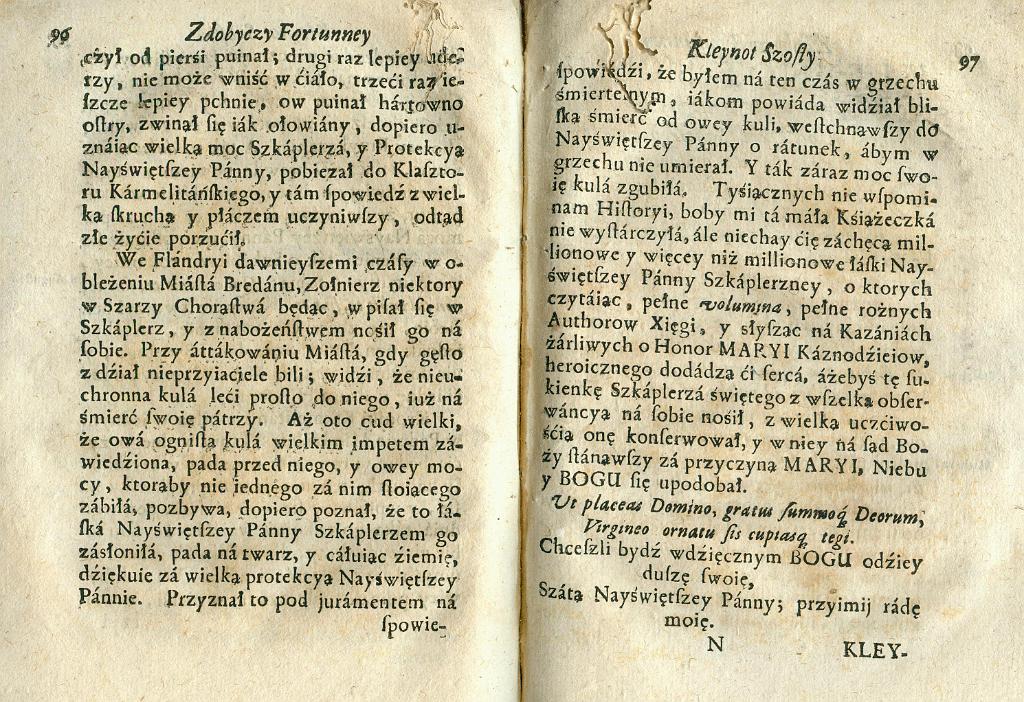 96 Zdobyczy Fortunney
czył od pierśi puinał; drugi raz lepiey ude-
rzy, nie może wniść w ćiáło, trzeći raz ie-
ſzcze lepiey pchnie, ow puinał hártowno
oſtry, zwinął ſię iák ołowiány, dopiero u-
znáiąc wielką moc Szkáplerzá, y Protekcyą
Nayświętſzey Pánny, pobieżał do Klaſzto-
ru Kármelitáńſkiego, y tám ſpowiedź z wiel-
ką ſkruchą y płáczem uczyniwſzy, odtąd
złe życie porzućił.
We Flándryi dawnieyſzemi czáſy w o-
bleżeniu Miáſtá Bredánu, Zołnierz niektory
w Szarzy Chorąſtwá będąc, wpiſał ſię w
Szkáplerz, y z nabożeńſtwem nośił go ná
ſobie. Przy áttákowániu Miáſtá, gdy gęſto
z dział nieprzyiaćiele bili; widźi, że nieu-
chronna kulá leći proſto do niego, iuż ná
śmierć ſwoię pátrzy. Aż oto cud wielki,
że owá ogniſta kulá wielkim impetem zá-
wiedźiona, pada przed niego, y owey mo-
cy, ktoraby nie iednego zá nim ſtoiącego
zábiłá, pozbywa, dopiero poznał, że to łá-
ſká Nayświętſzey Pánny Szkáplerzem go
záſłoniłá, pada ná twarz, y cáłuiąc źiemię,
dźiękuie zá wielką protekcyą Nayświętſzey
Pánnie. Przyznał to pod jurámentem ná
ſpowie-
Kleynot Szoſty. 97
ſpowiedźi, że byłem ná ten czás w grzechu
śmiertelnym, iákom powiáda widźiał bli-
ſką śmierć od owey kuli, weſtchnąwſzy do
Nayświętſzey Pánny o rátunek, ábym w
grzechu nie umierał. Y ták záraz moc ſwo-
ię kulá zgubiłá. Tyśiącznych nie wſpomi-
nam Hiſtoryi, boby mi tá máła Kśiążeczká
nie wyſtárczyłá, ále niechay ćię záchęca mil-
lionowe y więcey niż millionowe łáſki Nay-
świętſzey Pánny Szkáplerzney, o ktorych
czytáiąc, pełne volumina, pełne rożnych
Authorow Xięgi, y słyſząc ná Kazániách
żárliwych o Honor MARYI Káznodźieiow,
heroicznego dodádzą ći ſercá, áżebyś tę ſu-
kienkę Szkáplerzá świętego z wſzelką obſer-
wáncyą ná ſobie nośił, z wielką uczćiwo-
śćią onę konſerwował, y w niey ná ſąd Bo-
ży ſtánąwſzy zá przyczyną MARYI, Niebu
y BOGU ſię upodobał.
Ut placeas Domino, gratus ſummoq́ Deorum,
Virgineo ornatu ſis cupiasq́ tegi.
Chceſzli bydź wdźięcznym BOGU odźiey
duſzę ſwoię,
Szátą Nayświętſzey Pánny; przyimij rádę
moię.
N KLEY-